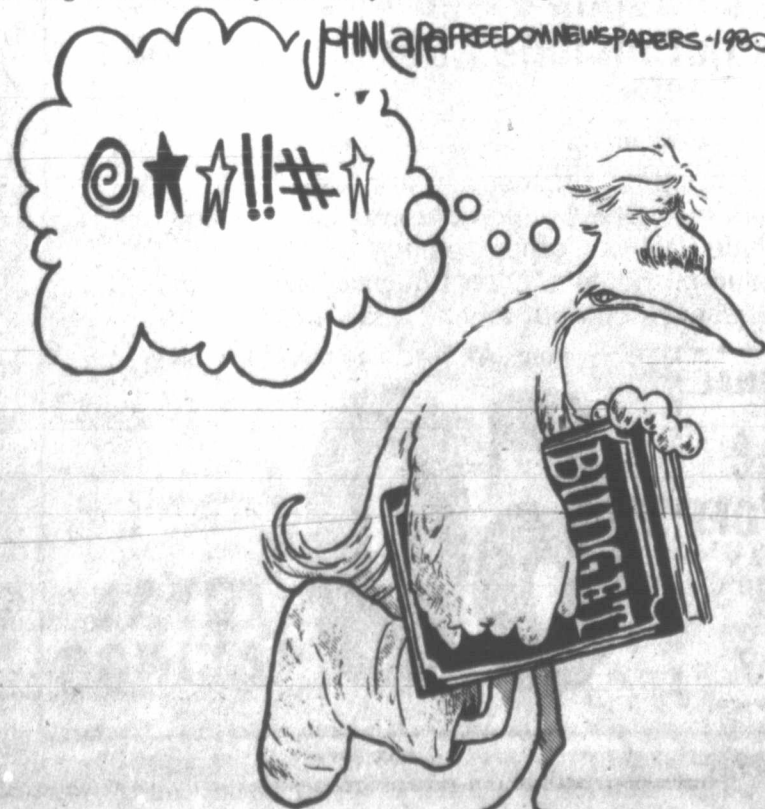 JOHN LARA FREEDOM NEWSPAPERS -1980
@★☆!!#☆
BUDGET